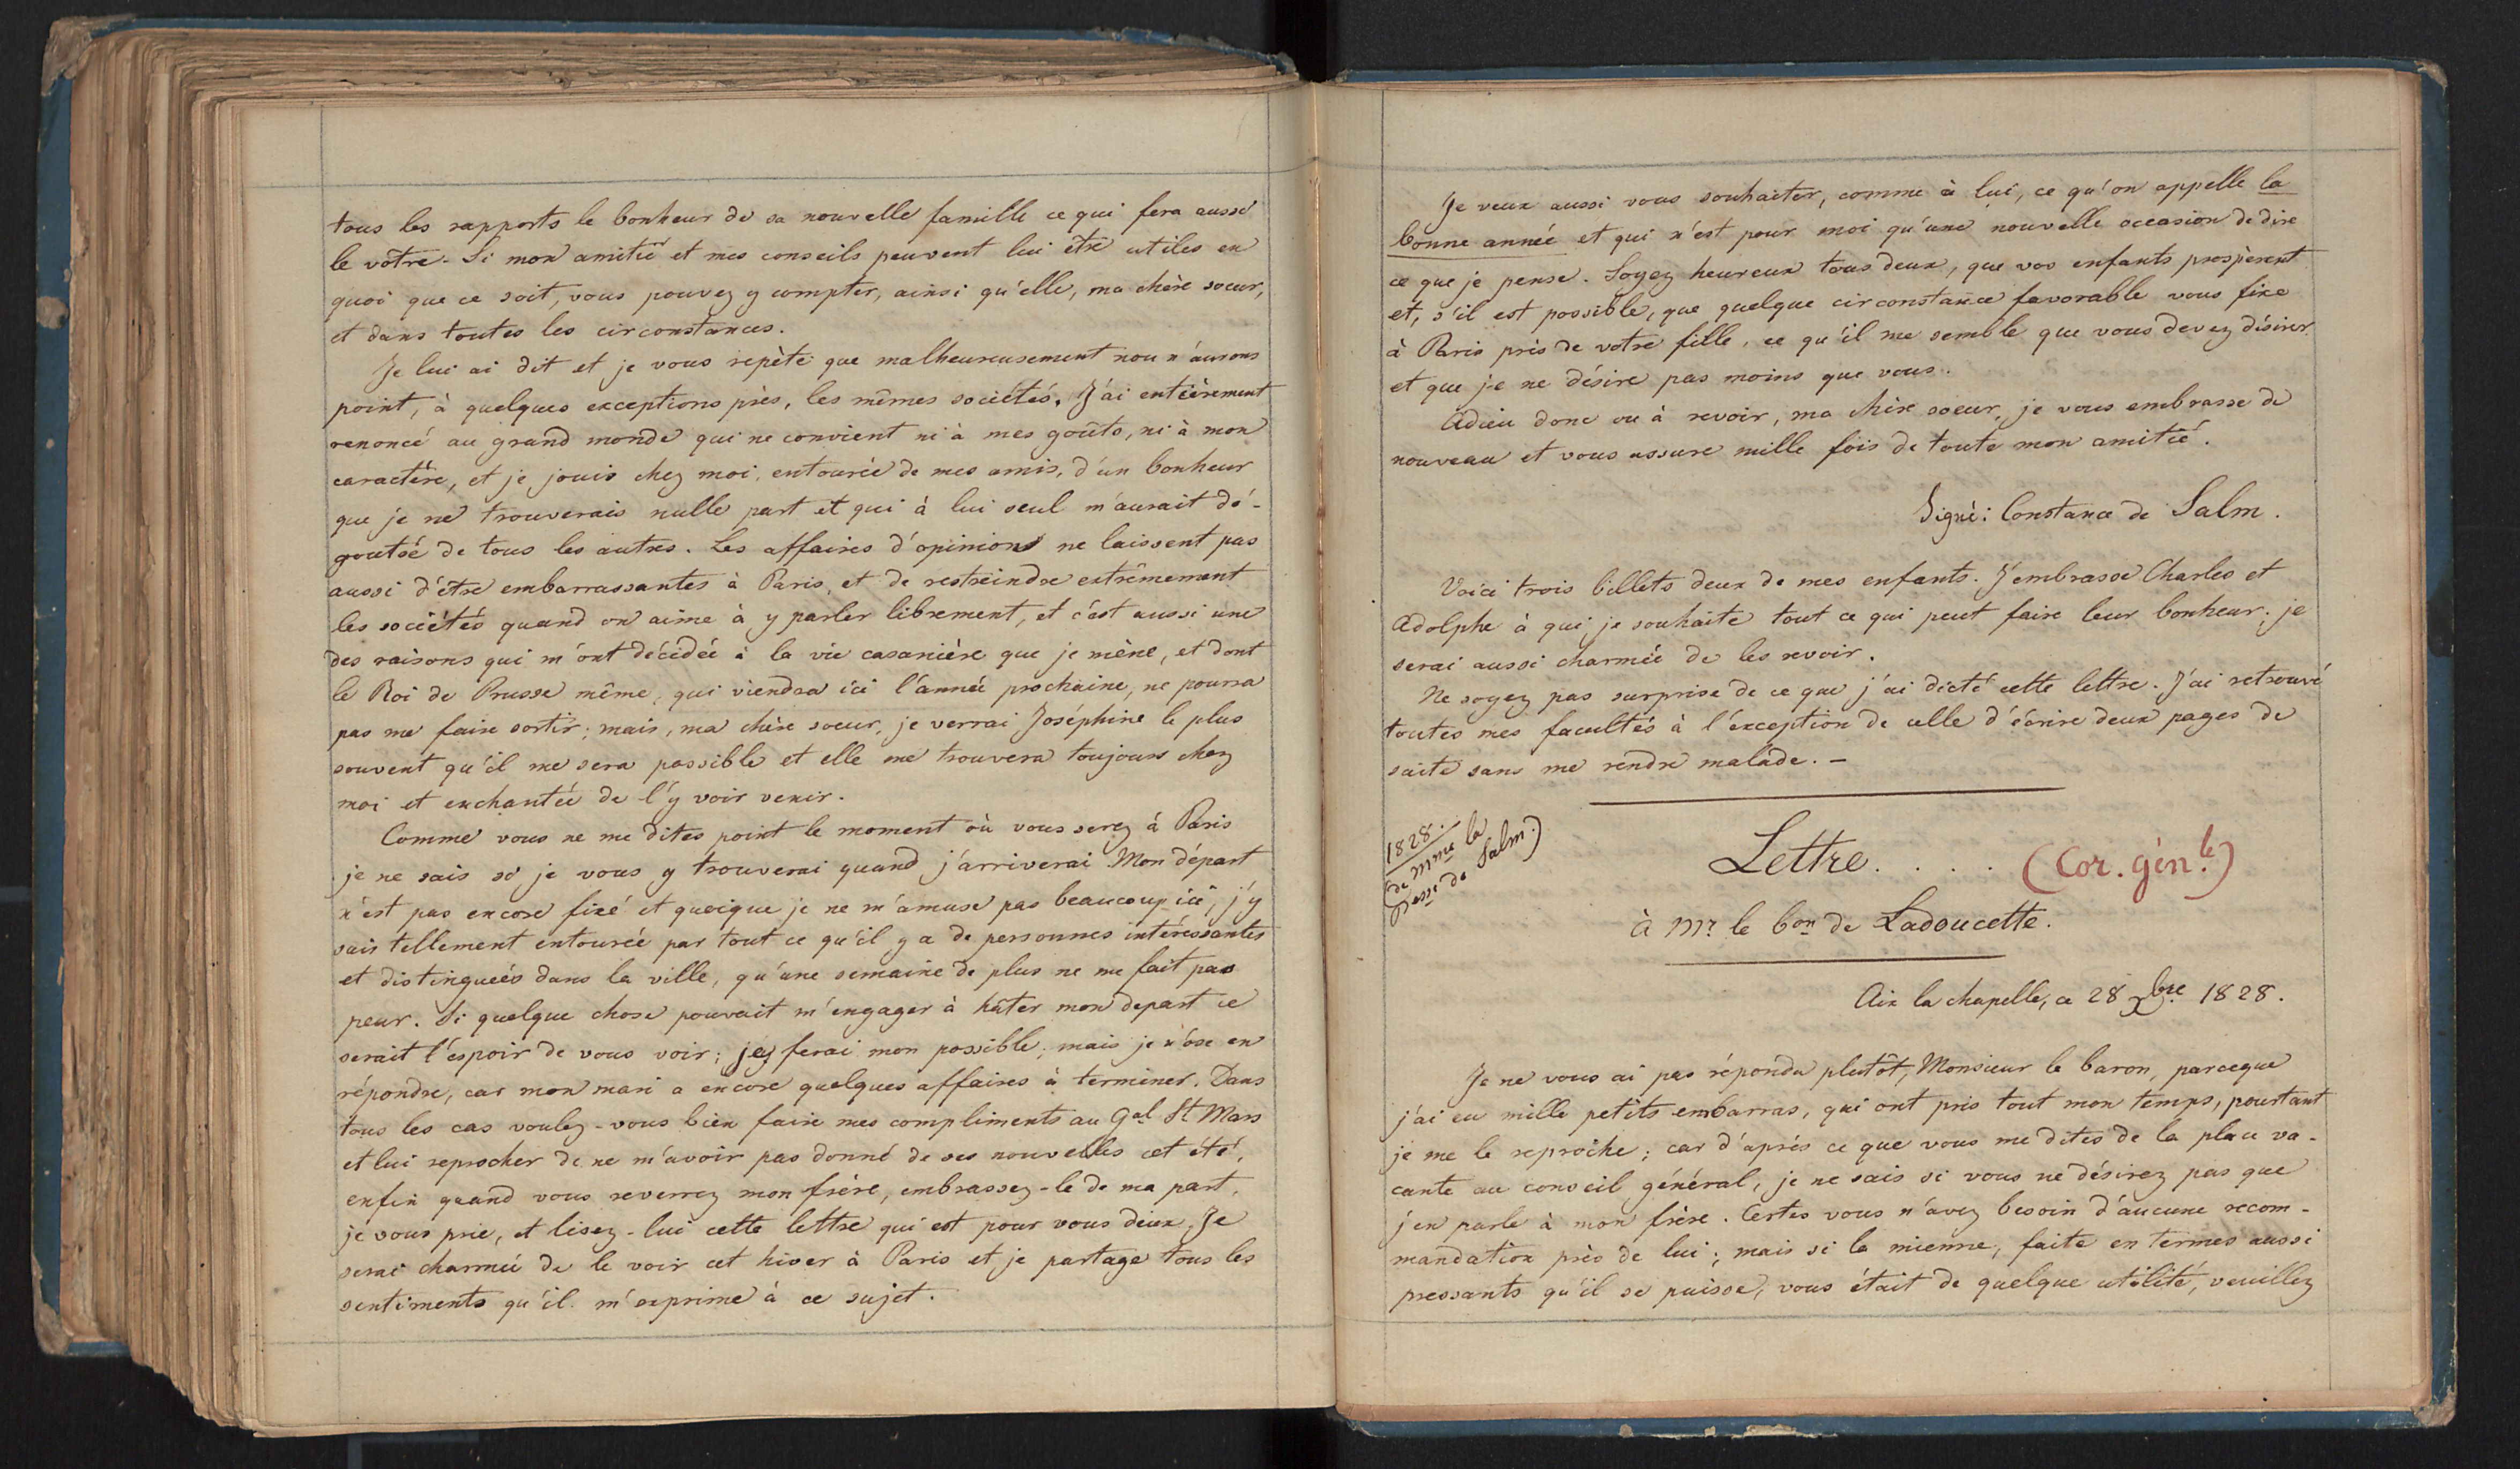 tous les rapports le bonheur de sa nouvelle famille ce qui fera aussi
le vôtre. Si mon amitié et mes conseils peuvent lui être utiles en
quoi que ce soit, vous pouvez y compter, ainsi qu'elle, ma chère soeur,
et dans toutes les circonstances.
Je lui ai dit et je vous repète que malheureusement nou n'aurons
point, à quelques exceptions près, les mêmes sociétés. J'ai entièrement
renoncé au grand monde qui ne convient ni à mes goûts, ni à mon
caractère, et je jouis chez moi, entourée de mes amis, d'un bonheur
que je ne trouverais nulle part et qui à lui seul m'aurait dé-
goutée de tous les autres. Les affaires d'opinions ne laissent pas
aussi d'être embarrassantes à Paris, et de restreindre extrêmement
les sociétés quand on aime à y parler librement, et c'est aussi une
des raisons qui m'ont décidée à la vie casanière que je mène, et dont
le Roi de Prusse même, qui viendra ici l'année prochaine, ne pourra
pas me faire sortir; mais, ma chère soeur, je verrai Joséphine le plus
souvent qu'il me sera possible et elle me trouvera toujours chez
moi et enchantée de l'y voir venir.
Comme vous ne me dites point le moment où vous serez à Paris
je ne sais si je vous y trouverai quand j'arriverai. Mon départ
n'est pas encore fixé et quoique je ne m'amuse pas beaucoup ici, j'y
suis tellement entourée par tout ce qu'il y a de personnes intéressantes
et distinguées dans la ville, qu'une semaine de plus ne me fait pas
peur. Si quelque chose pouvait m'engager à hâter mon depart ce
serait l'espoir de vous voir; j'ey ferai mon possible; mais je n'ose en
répondre, car mon mari a encore quelques affaires à terminer. Dans
tous les cas voulez-vous bien faire mes compliments au Gal St Mars
et lui reprocher de ne m'avoir pas donné de ses nouvelles cet été;
enfin quand vous reverrez mon frère, embrassez-le de ma part,
je vous prie, et lisez-lui cette lettre qui est pour vous deux. Je
serai charmée de le voir cet hiver à Paris et je partage tous les
sentiments qu'il m'exprime à ce sujet.
Je veux aussi vous souhaiter, comme à lui, ce qu'on appelle la
bonne année et qui n'est pour moi qu'une nouvelle occasion de dire
ce que je pense. Soyez heureux tous deux, que vos enfants prospèrent
et, s'il est possible, que quelque circonstance favorable vous fixe
à Paris près de votre fille, ce qu'il me semble que vous devez désirer
et que je ne désire pas moins que vous.
Adieu donc ou à revoir, ma chère soeur, je vous embrasse de
nouveau et vous assure mille fois de toute mon amitié.
Signé: Constance de Salm.
Voici trois billets deux de mes enfants. J'embrasse Charles et
Adolphe à qui je souhaite tout ce qui peut faire leur bonheur; je
serai aussi charmée de les revoir.
Ne soyez pas surprise de ce que j'ai dicté cette lettre. J'ai retrouvé
toutes mes facultés à l'éxception de celle d'écrire deux pages de
suite sans me rendre malade. -
1828.
(de Mme la
Pesse de Salm.)
Lettre. . . . (Cor. gén.le)
à Mr. le bon de Ladoucette.
Aix la chapelle, ce 28 Xbre 1828.
Je ne vous ai pas répondu plutôt, Monsieur le baron, parceque
j'ai eu mille petits embarras, qui ont pris tout mon temps, pourtant
je me le reproche; car d'après ce que vous me dites de la place va-
cante au conseil général, je ne sais si vous ne désirez pas que
j'en parle à mon frère. Certes vous n'avez besoin d'aucune recom-
mandation près de lui; mais si la mienne, faite en termes aussi
pressants qu'il se puisse, vous était de quelque utilité, veuillez